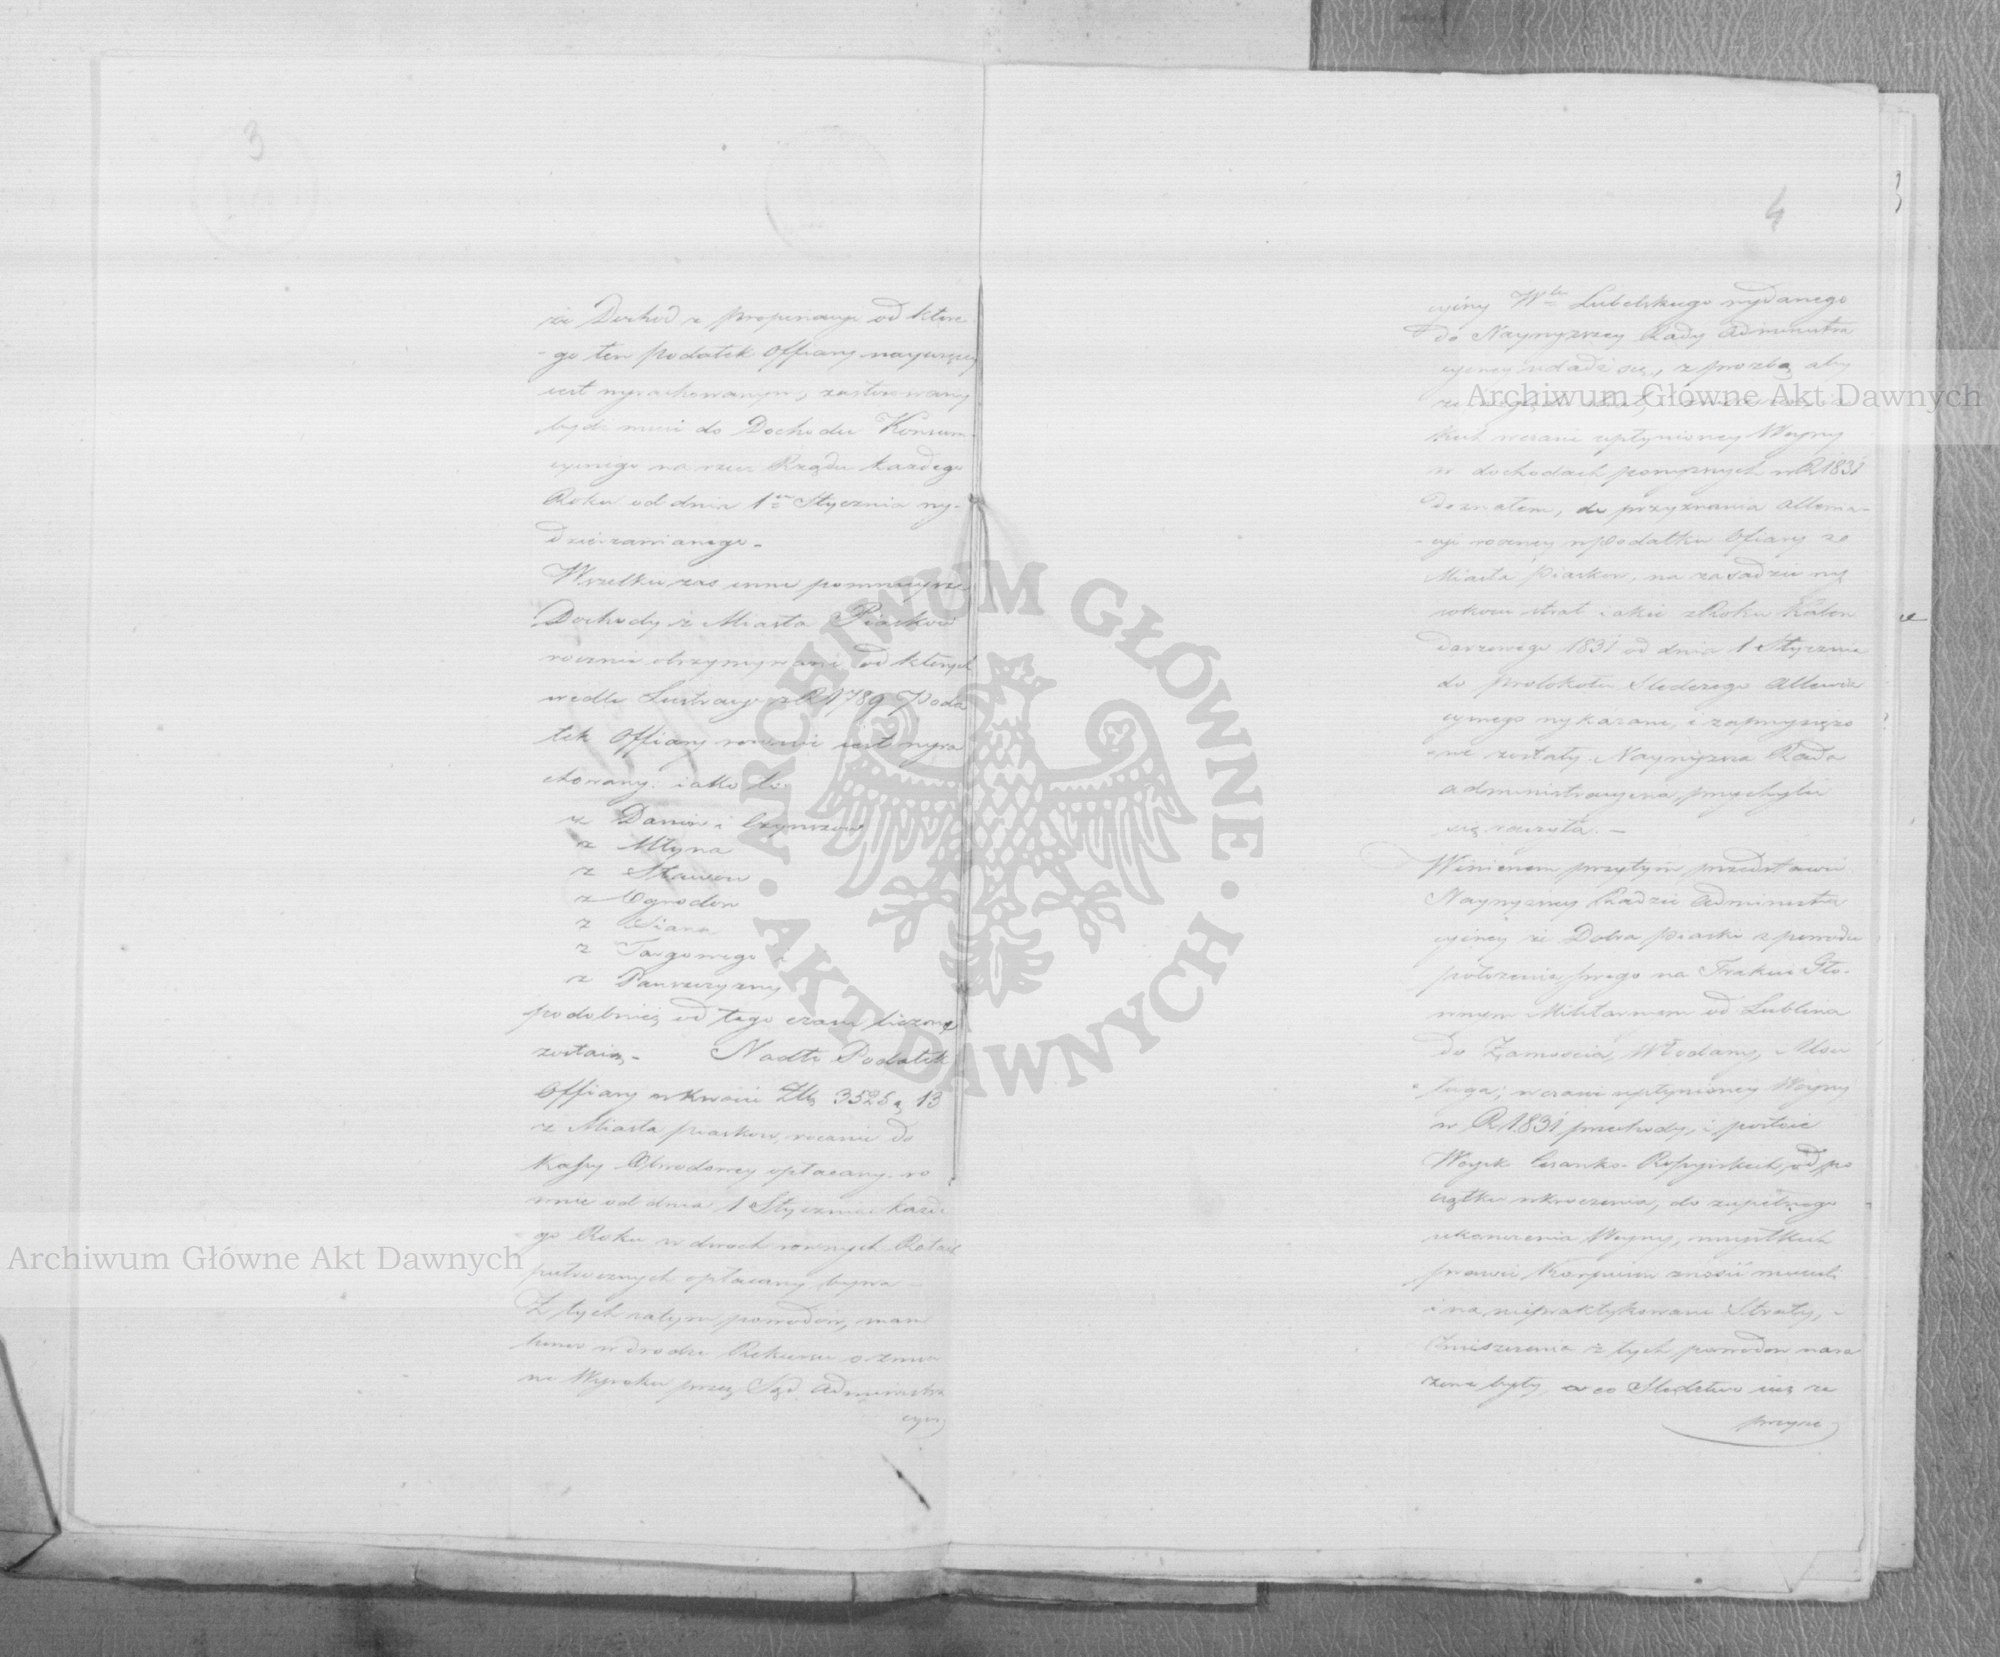 3
że Dochod z propinacyi od które-
-go ten podatek Offiary naywięcey
iest wyrachowanym, zastosowany
bydź musi do Dochodu Konsum-
cyinego na rzecz Rządu każdego
Roku od dnia 1go Stycznia wy-
dzierzawianego -
Wszelkie zas inne pomnieysze
Dochody z Miasta Piaskow
rocznie otrzymywane, od których
wedle Lustracyi z R 1789 Poda
tek Offiary rownie iest wyra
chowany. iako to
z Danin i Czynszow
z Młyna
z Stawow
z Ogrodow
z Siana
z Targowego i
z Panszczyzny
podobnież od tego czasu liczone
zostaią - Nadto Podatek
Offiary w kwocie Złp 3525 g 13
z Miasta Piaskow, rocznie do
Kassy Obwodowey opłacany. ro
wnie od dnia 1 Stycznia każde
go Roku w dwoch rownych Ratach
połrocznych opłacany bywa -
Z tych zatym powodow, mam
honor w drodze Rekursu o zmia
ne Wyroku przez Sąd Administra
cyiny
4
cyiny Wtwa Lubelskiego wydanego
do Naywyzszey Rady Administra
cyiney udadź się, z prozbą aby
Archiwum Główne Akt Dawnych
w czasie upłynioney Woyny
w dochodach powyzszych w R 1831
doznałem, do przyznania Allewia-
-cyi roczney w Podatku Ofiary ze
Miasta Piaskow, na zasadzie wy
rokow strat iakie z Roku Kalen
darzowego 1831 od dnia 1 Stycznia
do protokołu Śledczego Allewia
cyinego wykazane, i zaprzysięzo
-ne zostały Naywyższa Rada
Administracyina, przychylić
się raczyła. -
Winienem przytym przedstawić
Naywyzszey Radzie Administra
cyiney że Dobra Piaski z powodu
położenia swego na Trakcie Gło-
wnym Militarnym od Lublina
do Zamościa, Włodawy, i Uści
ługa; w czasie upłynioney Woyny
w R 1831 przechody, i postoie
Woysk Cesarsko-Rossyiskich, od po
czątku wkroczenia, do zupełnego
ukonczenia Woyny, wszystkich
prawie Korpusow znosić musiały
i na niepraktykowane Straty, i
Zniszczenia z tych powodow nara
zone były, a co Śledztwo iuż za
przysię
ARCHIWUM GŁÓWNE
AKT DAWNYCH
Archiwum Główne Akt Dawnych